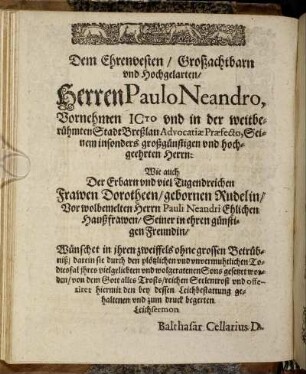 Dem Ehrenvesten / Großachtbarn
vnd Hochgelarten /
Herren Paulo Neandro,
Vornehmen ICTO vnd in der weitbe-
rühmten Stadt Breßlau Advocatiæ Præfecto, Sei-
nem insonders großgünstigen vnd hoch-
geehrten Herrn:
Wie auch
Der Erbarn vnd viel Tugendreichen
Frawen Dorotheen / gebornen Rudelin /
Vorwolbemelten Herrn Pauli Neandri Ehlichen
Haußfrawen / Seiner in ehren günsti-
gen Freundin /
Wünschet in ihren zweiffels ohne grossen Betrüb-
niß / darein sie durch den plötzlichen vnd vnvermuhtlichen To-
desfal ihres vielgeliebten vnd wolgeratenen Sons gesetzt wor-
den / von dem Gott alles Trosts / reichen Seelentrost vnd offe-
riret hiermit den bey dessen Leichbestattung ge-
haltenen vnd zum druck begerten
Leichsermon
Balthasar Cellarius D.